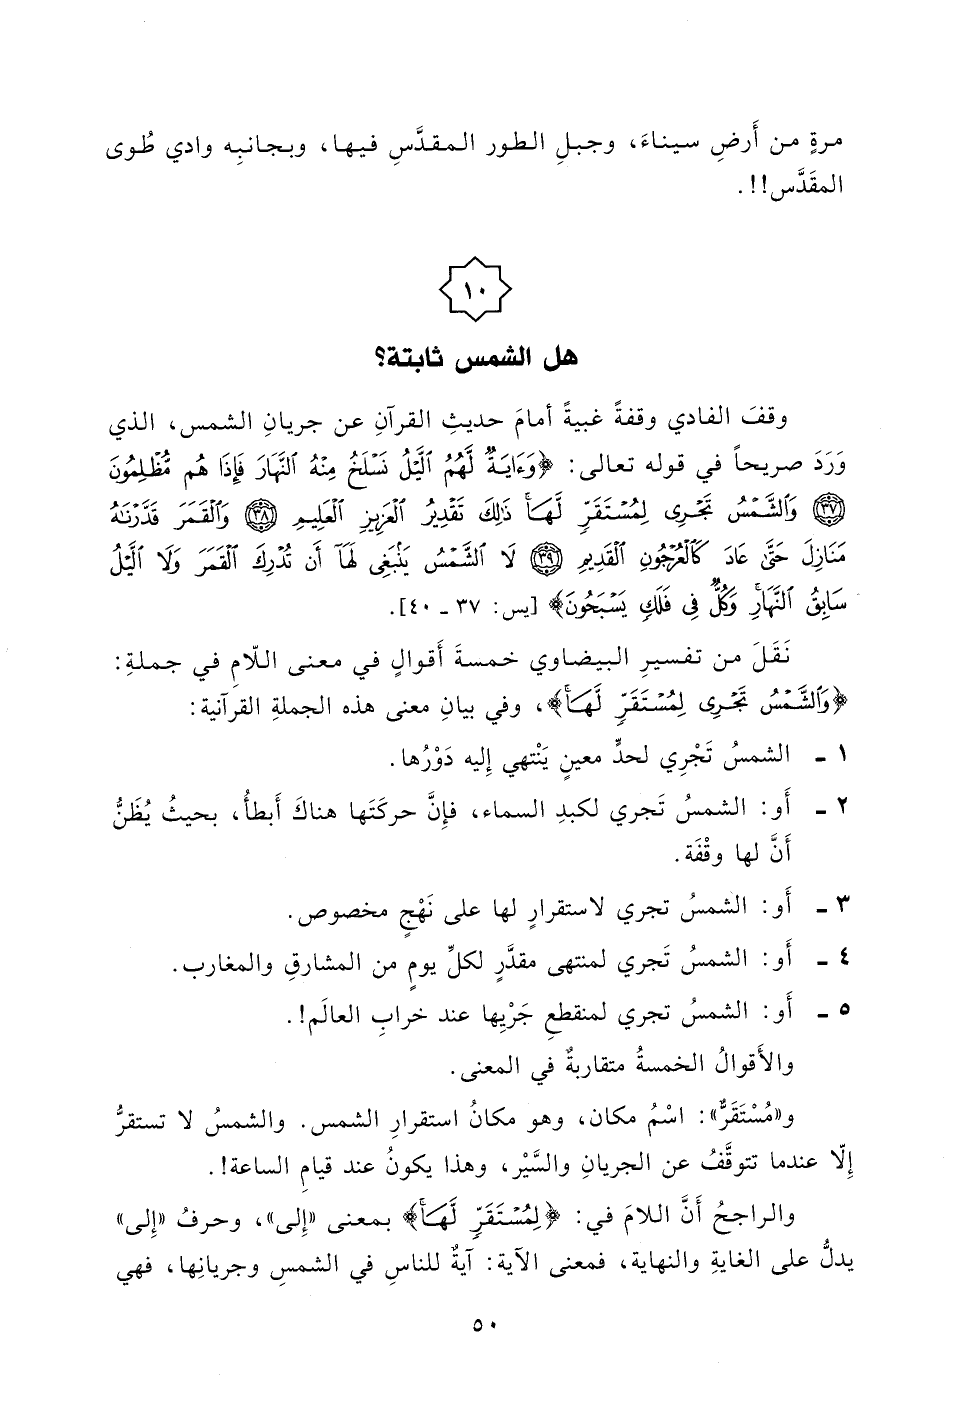 مرةٍ من أَرضِ سيناءَ، وجبلِ الطور المقدَّسِ فيها، وبجانبِه وادي طُوى
المقَدَّس!!.
١٠
هل الشمس ثابتة؟
وقفَ الفادي وقفةً غبيةً أمامَ حديثِ القرآنِ عن جريانِ الشمس، الذي
وَرَدَ صريحاً في قوله تعالى: ﴿وَءَايَةٌ لَّهُمُ ٱلَّيْلُ نَسْلَخُ مِنْهُ ٱلنَّهَارَ فَإِذَا هُم مُّظْلِمُونَ
(٣٧) وَٱلشَّمْسُ تَجْرِى لِمُسْتَقَرٍّ لَّهَا ۚ ذَٰلِكَ تَقْدِيرُ ٱلْعَزِيزِ ٱلْعَلِيمِ (٣٨) وَٱلْقَمَرَ قَدَّرْنَٰهُ
مَنَازِلَ حَتَّىٰ عَادَ كَٱلْعُرْجُونِ ٱلْقَدِيمِ (٣٩) لَا ٱلشَّمْسُ يَنۢبَغِى لَهَآ أَن تُدْرِكَ ٱلْقَمَرَ وَلَا ٱلَّيْلُ
سَابِقُ ٱلنَّهَارِ ۚ وَكُلٌّ فِى فَلَكٍ يَسْبَحُونَ﴾ [يس: ٣٧ - ٤٠].
نَقَلَ من تفسيرِ البيضاوي خمسةَ أَقوالٍ في معنى اللّامِ في جملةِ:
﴿وَٱلشَّمْسُ تَجْرِى لِمُسْتَقَرٍّ لَّهَا ۚ﴾، وفي بيانِ معنى هذه الجملةِ القرآنية:
١ - الشمسُ تَجْرِي لحدٍّ معينٍ يَنْتهي إِليه دَوْرُها.
٢ - أَو: الشمسُ تَجري لكبدِ السماء، فإِنَّ حركتَها هناكَ أَبطأُ، بحيثُ يُظَنُّ
أَنَّ لها وقْفَة.
٣ - أَو: الشمسُ تجري لاستقرارٍ لها على نَهْجٍ مخصوص.
٤ - أَو: الشمسُ تَجري لمنتهى مقدَّرٍ لكلِّ يومٍ من المشارقِ والمغارب.
٥ - أَو: الشمسُ تجري لمنقطعِ جَرْيِها عند خرابِ العالَم!.
والأَقوالُ الخمسةُ متقاربةٌ في المعنى.
و«مُسْتَقَرٌّ»: اسْمُ مكان، وهو مكانُ استقرارِ الشمس. والشمسُ لا تستقرُّ
إِلّا عندما تتوقَّفُ عن الجريانِ والسَّيْر، وهذا يكونُ عند قيامِ الساعة!.
والراجحُ أَنَّ اللامَ في: ﴿لِمُسْتَقَرٍّ لَّهَا ۚ﴾ بمعنى «إِلى»، وحرفُ «إِلى»
يدلُّ على الغايةِ والنهاية، فمعنى الآية: آيةٌ للناسِ في الشمسِ وجريانِها، فهي
٥٠